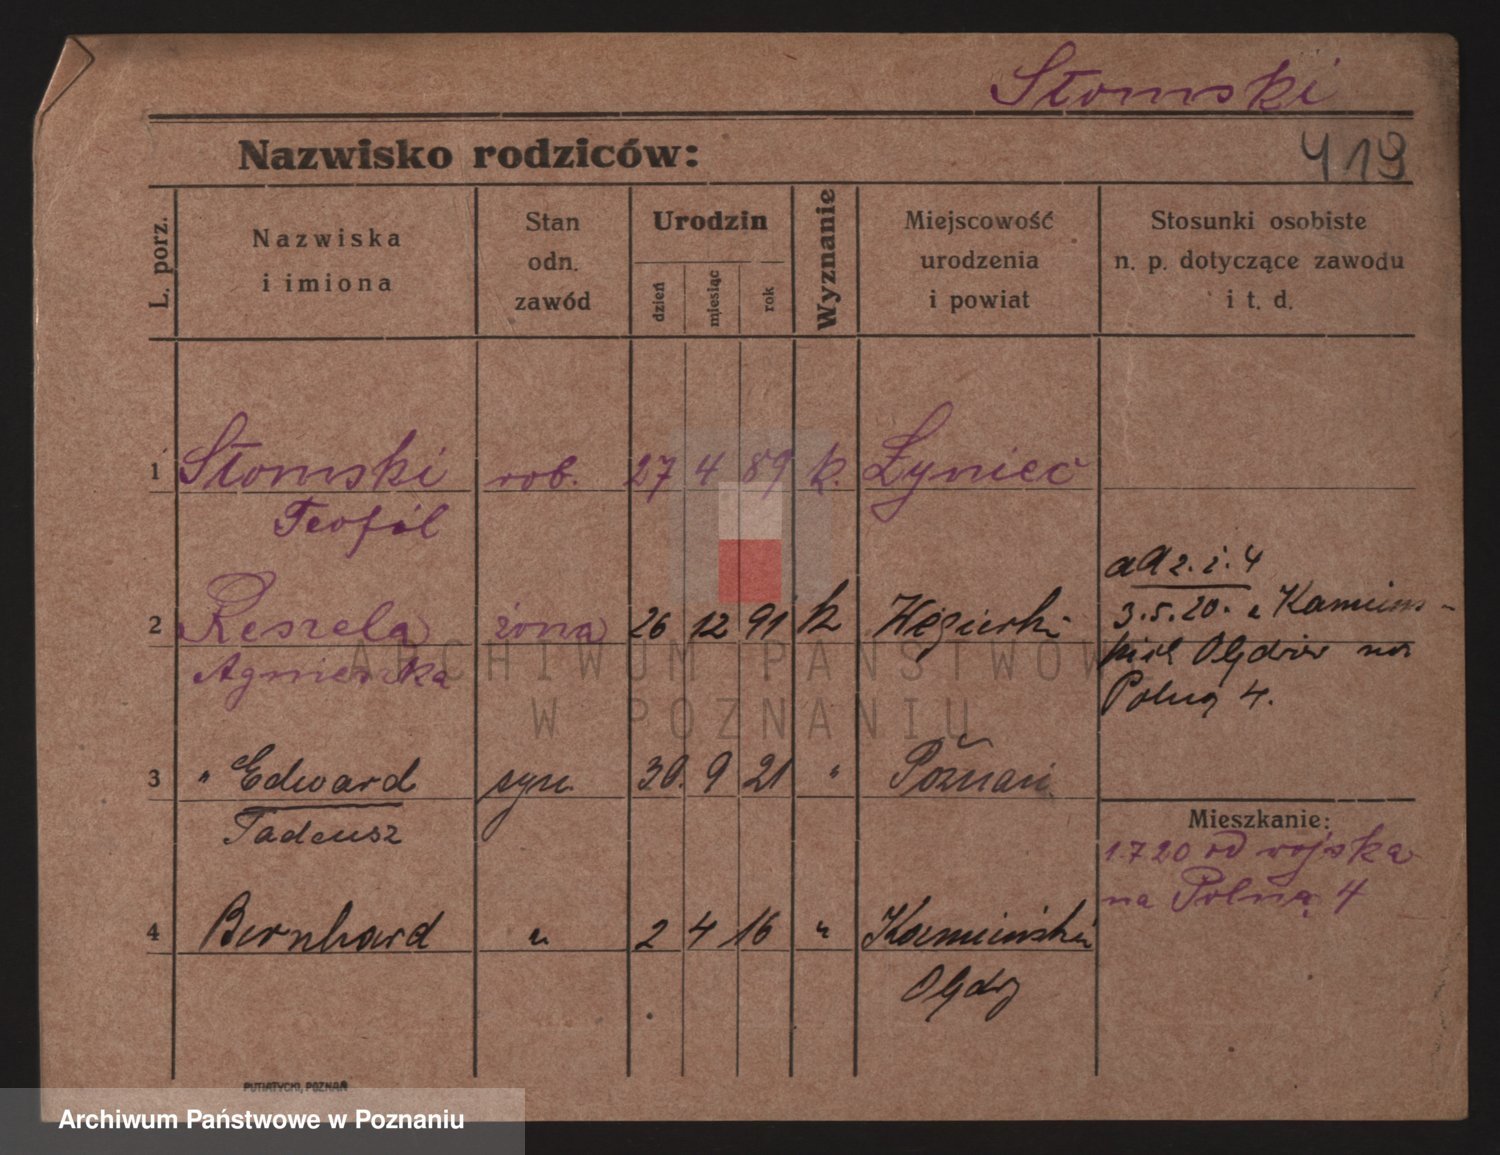 Słomski
Nazwisko rodziców:
419
L. porz.
Nazwiska
i imiona
Stan
odn.
zawód
Urodzin
dzień
miesiąc
rok
Wyznanie
Miejscowość
urodzenia
i powiat
Stosunki osobiste
n. p. dotyczące zawodu
i t. d.
1 Słomski rob. 27 4 89 k. Żyniec
Teofil
ad 2. i. 4
2 Reszela żona 26 12 91 k Węgierki
3.5.20. z Kamiens-
Agnieszka
Olędrów na
Polną 4.
3 " Edward syn. 30. 9 21 " Poznań
Tadeusz
Mieszkanie:
1.7 20 od wojska
na Polną 4
4 Bernhard " 2 4 16 " Kamieński
Olędry
PUTIATYCKI, POZNAŃ
ARCHIWUM PAŃSTWOWE
W POZNANIU
Archiwum Państwowe w Poznaniu